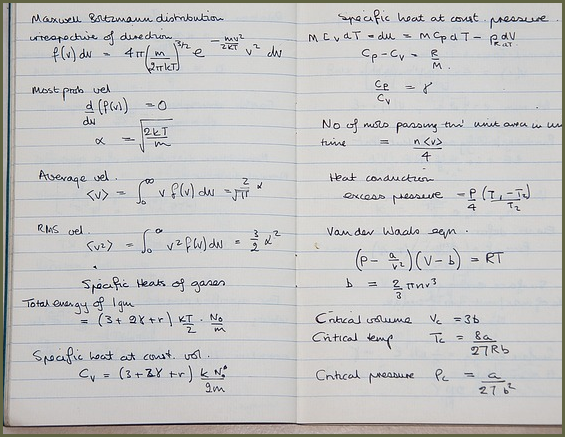 Maxwell Boltzmann distribution
irrespective of direction
f(v) dv = 4π(m/2πkT)^3/2 e^-mv²/2kT v² dv
Most prob vel
d/dv (f(v)) = 0
α = √(2kT/m)
Average vel.
<v> = ∫₀^∞ v f(v) dv = 2/√π α
RMS vel.
<v²> = ∫₀^∞ v² f(v) dv = 3/2 α²
Specific Heats of gases
Total energy of 1gm
= (3 + 2γ + r) kT/2 · N₀/m
Specific heat at const. vol.
Cv = (3 + 2γ + r) k N₀/2m
Specific heat at const. pressure.
M Cv dT = du = M Cp dT - p dV
Cp - Cv = R/M.
Cp/Cv = γ
No of mols passing thro' unit area in
time = n<v>/4
Heat conduction
excess pressure = P/4 (T₁-T₂)/T₂
Van der Waals eqn.
(P - a/v²)(V - b) = RT
b = 2/3 πnr³
Critical volume Vc = 3b
Critical temp Tc = 8a/27Rb
Critical pressure Pc = a/27b²